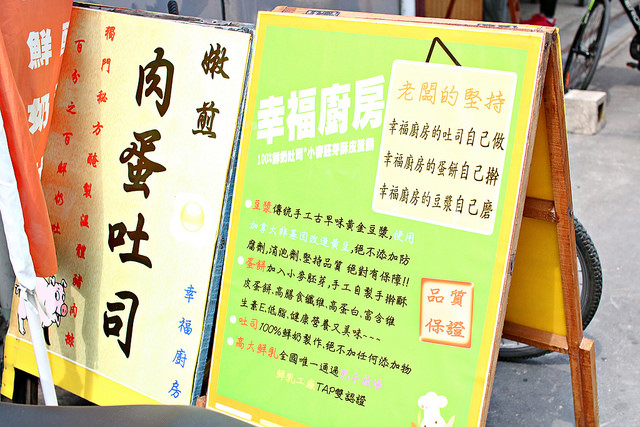 鮮
奶
獨門秘方醃製溫體豬肉排
百分之百鮮奶吐
嫩煎
肉蛋吐司
幸福廚房
幸福廚房
老闆的堅持
幸福廚房的吐司自己做
幸福廚房的蛋餅自己擀
幸福廚房的豆漿自己磨
豆漿傳統手工古早味黃金豆漿,使用
加拿大非基因改造黃豆,絕不添加防
腐劑,消泡劑.堅持品質 絕對有保障!!
蛋餅加入小麥胚芽,手工自製手擀酥
皮蛋餅.高膳食纖維.高蛋白.富含維
生素E.低脂.健康營養又美味~~~
吐司100%鮮奶製作,絕不加任何添加物
高大鮮乳全國唯一通過
鮮乳 TAP雙認證
品質
保證